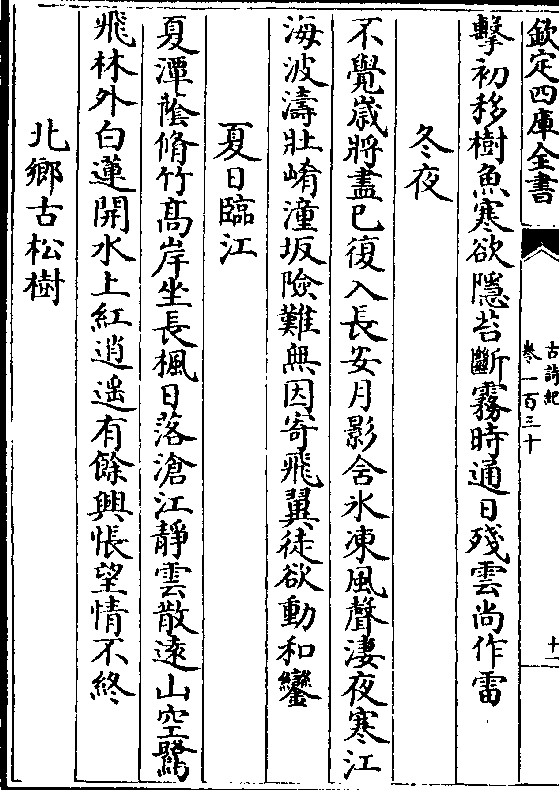 欽定四庫全書
古詩紀
卷一百三十
十一
擊初移樹魚寒欲隱苔斷霧時通日殘雲尚作雷
冬夜
不覺歲將盡已復入長安月影含氷凍風聲淒夜寒江
海波濤壯崤潼坂險難無因寄飛翼徒欲動和鑾
夏日臨江
夏潭蔭脩竹髙岸坐長楓日落滄江靜雲散逺山空鷺
飛林外白蓮開水上紅逍遥有餘興悵望情不終
北鄉古松樹